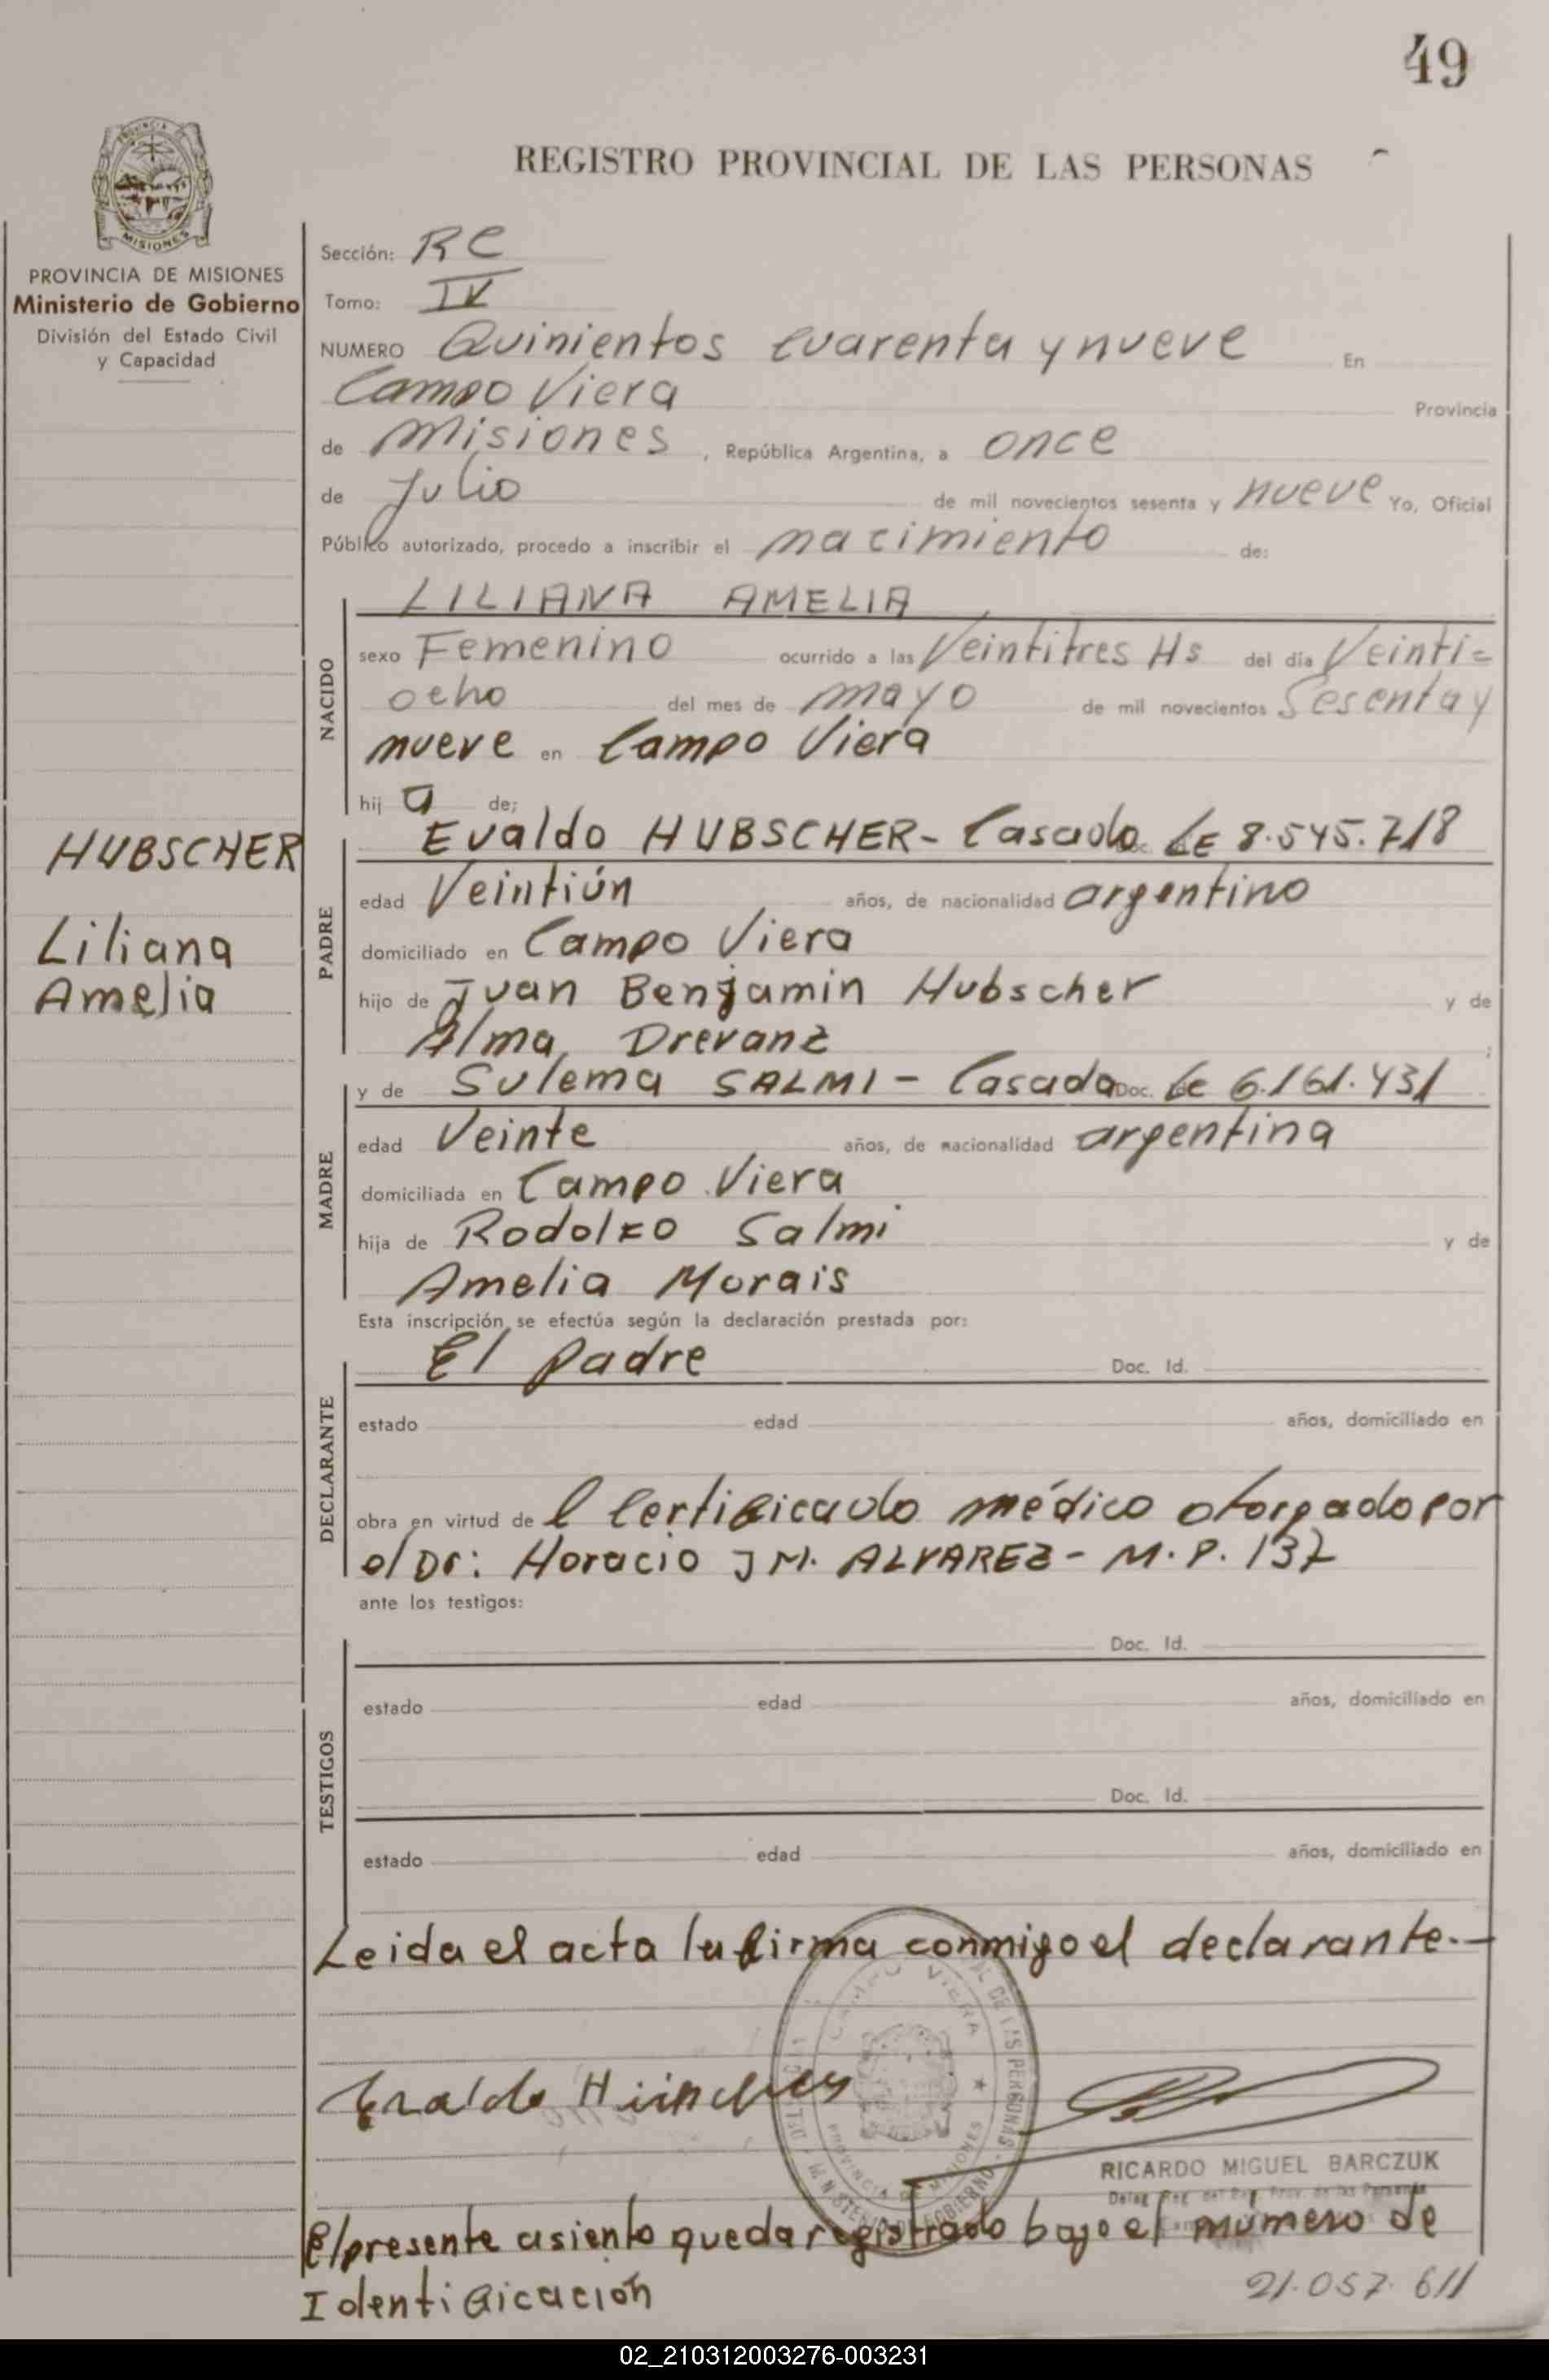 49
REGISTRO PROVINCIAL DE LAS PERSONAS
PROVINCIA DE MISIONES
Ministerio de Gobierno
División del Estado Civil
y Capacidad
Sección: RC
Tomo: IV
NUMERO Quinientos cuarenta y nueve En
Campo Viera Provincia
de Misiones, República Argentina, a once
de Julio de mil novecientos sesenta y nueve Yo, Oficial
Público autorizado, procedo a inscribir el nacimiento de:
NACIDO
LILIANA AMELIA
sexo Femenino ocurrido a las Veintitres Hs del día Veinti=
ocho del mes de mayo de mil novecientos Sesenta y
nueve en Campo Viera
hij a de;
HUBSCHER
Liliana
Amelia
PADRE
Evaldo HUBSCHER- Casado LE 8.545.718
edad Veintiún años, de nacionalidad argentino
domiciliado en Campo Viera
hijo de Juan Benjamin Hubscher y de
Alma Drevanz ;
MADRE
y de Sulema SALMI - Casada Doc. Le 6.161.431
edad Veinte años, de nacionalidad argentina
domiciliada en Campo Viera
hija de Rodolfo Salmi y de
Amelia Morais
Esta inscripción se efectúa según la declaración prestada por:
DECLARANTE
El padre Doc. Id.
estado edad años, domiciliado en
obra en virtud de l Certificado médico otorgado por
el Dr: Horacio J M. ALVAREZ - M.P. 137
ante los testigos:
TESTIGOS
Doc. Id.
estado edad años, domiciliado en
Doc. Id.
estado edad años, domiciliado en
Leida el acta la firma conmigo el declarante.-
CAMPO VIERA
PROVINCIA DE MISIONES
RICARDO MIGUEL BARCZUK
El presente asiento queda registrado bajo el numero de
Identificación 21.057.611
02_210312003276-003231